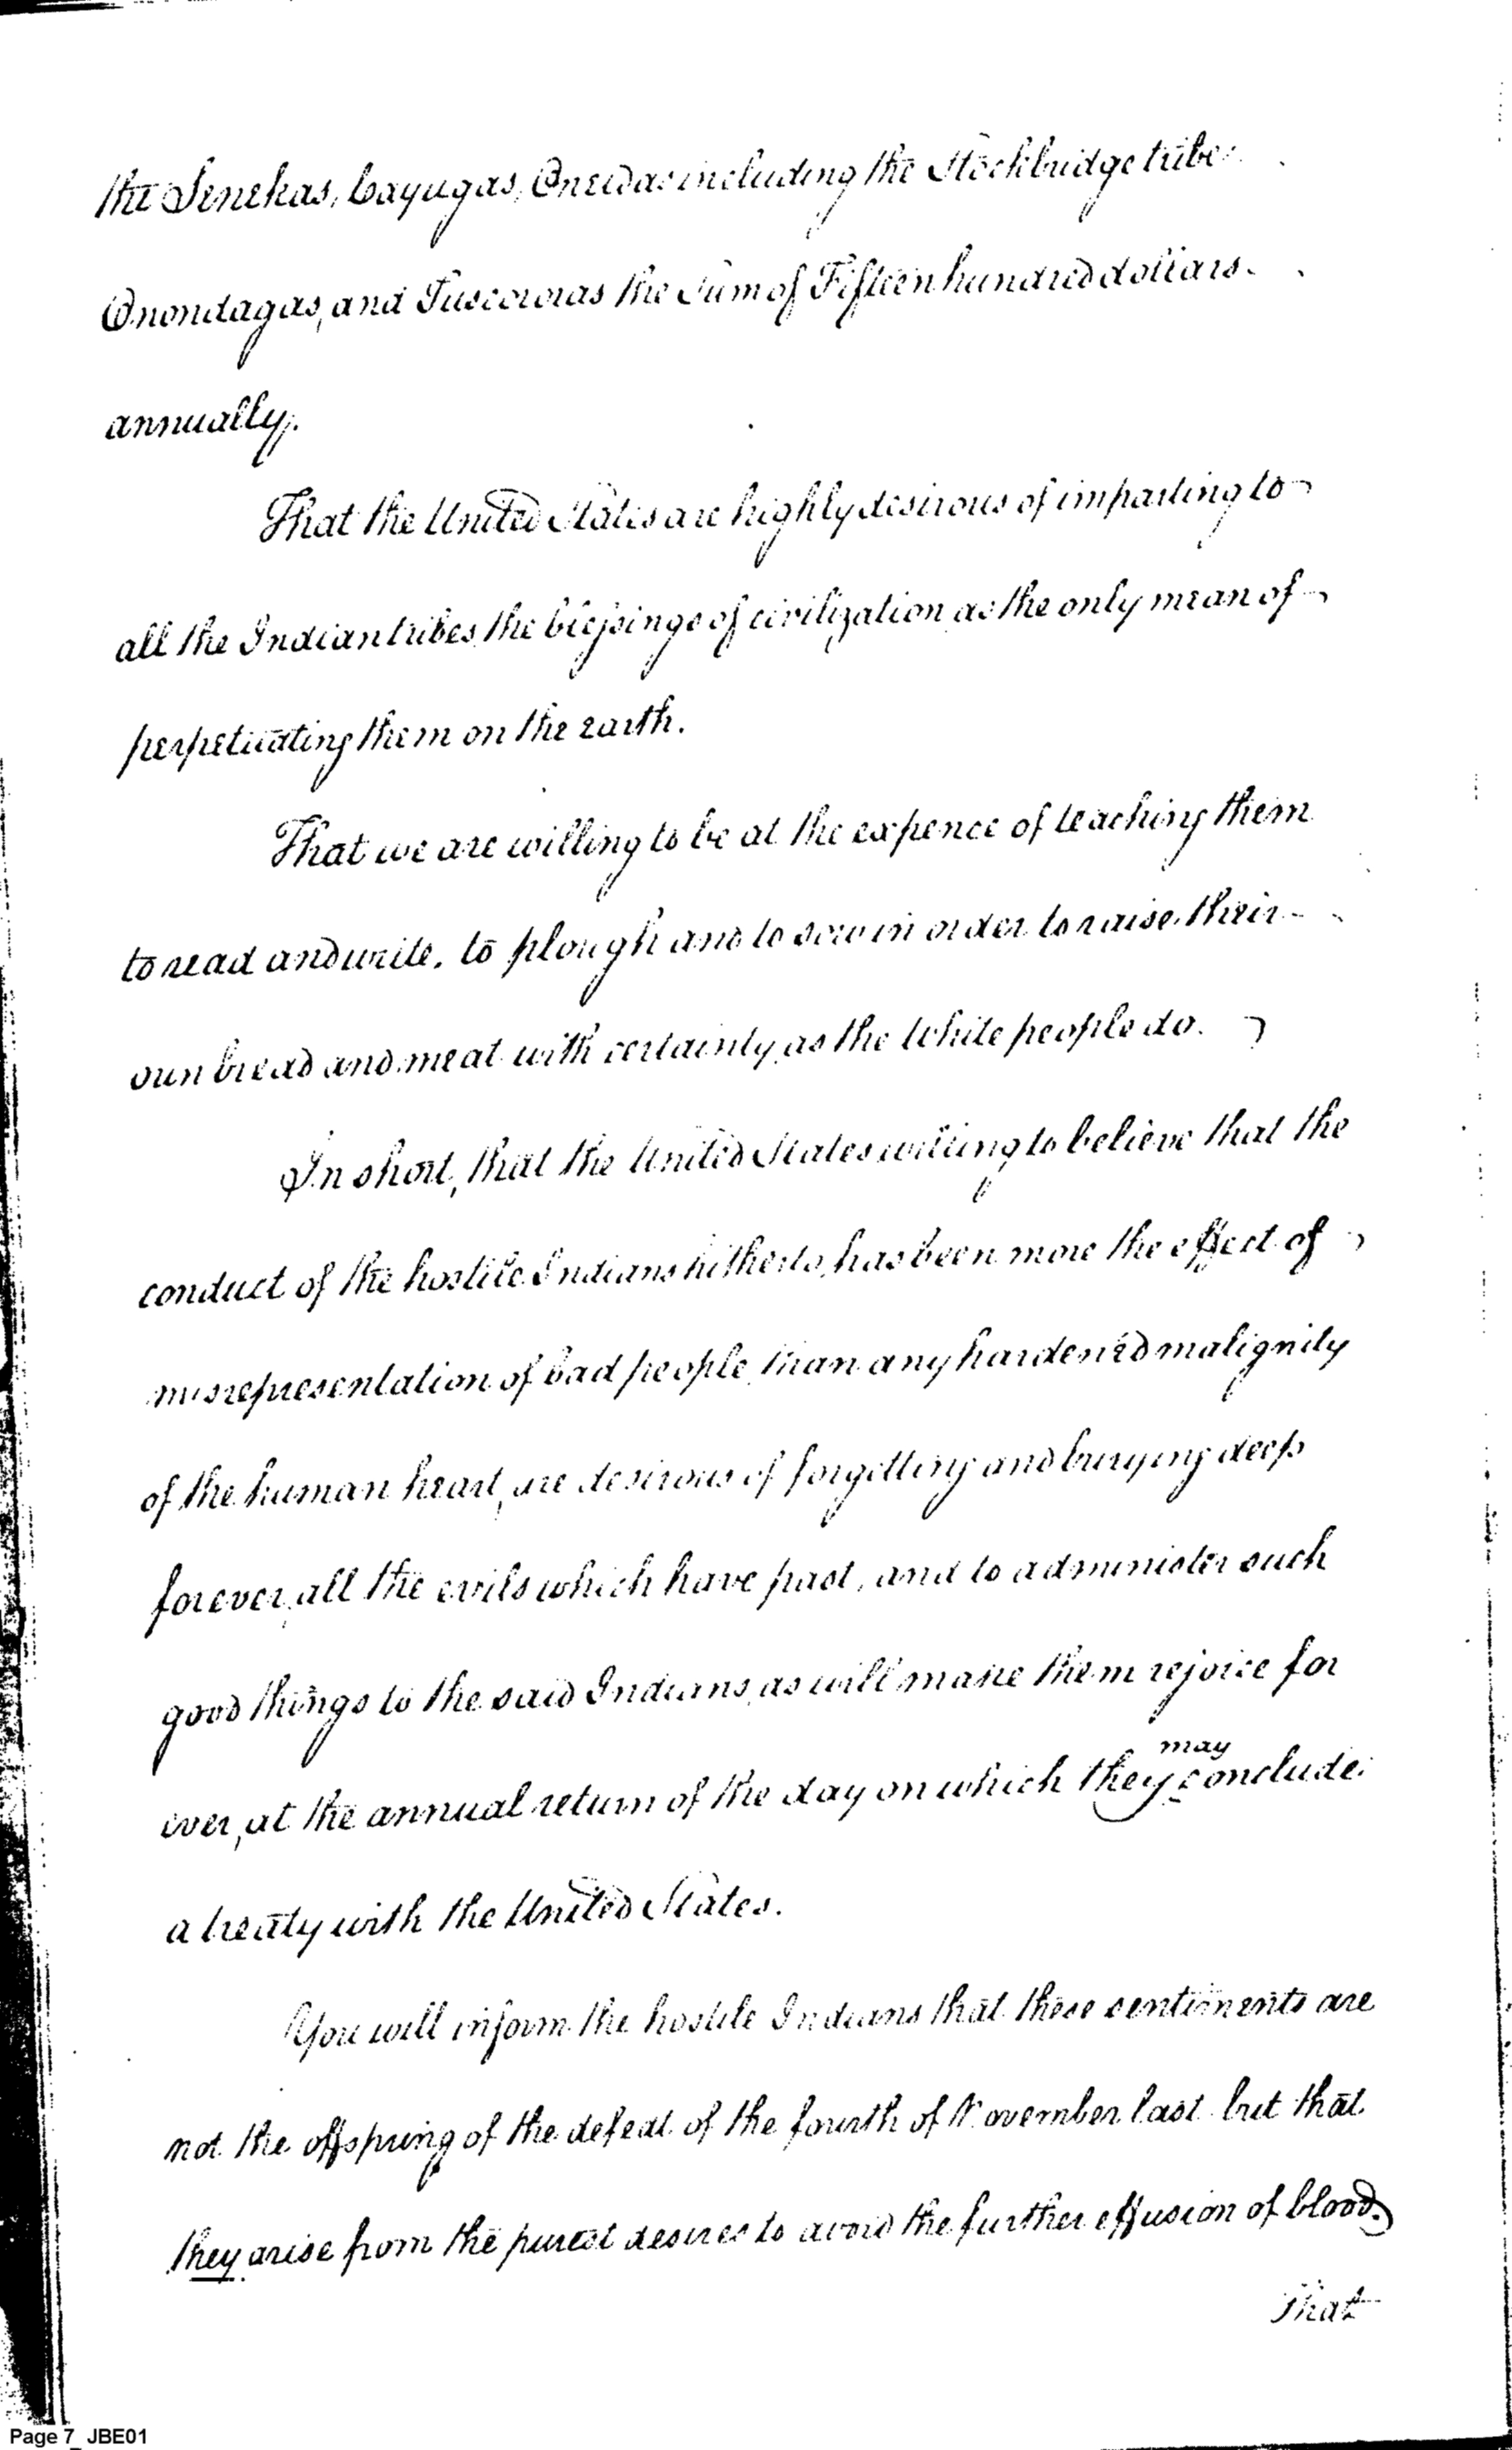 the Senekas, Cayugas, Oneidas including the Stockbridge tribe
Onondagas, and Tuscororas the Sum of Fifteen hundred dollars
annually.
That the United States are highly desirous of imparting to
all the Indian tribes the blessings of civilization as the only mean of
perpetuating them on the earth.
That we are willing to be at the expence of teaching them
to read and write, to plough and to sow in order to raise their
own bread and meat with certainty as the White people do.
In short, that the United States willing to believe that the
conduct of the hostile Indians hitherto, has been more the effect of
misrepresentation of bad people than any hardened malignity
of the human heart, are desirous of forgetting and burying deep
forever, all the evils which have past, and to administer such
good things to the said Indians as will make them rejoice for
ever, at the annual return of the day on which they may conclude
a treaty with the United States.
You will inform the hostile Indians that these sentiments are
not the offspring of the defeat of the fourth of November last but that
they arise from the purest desires to avoid the further effusion of blood.
That
Page 7_ JBE01